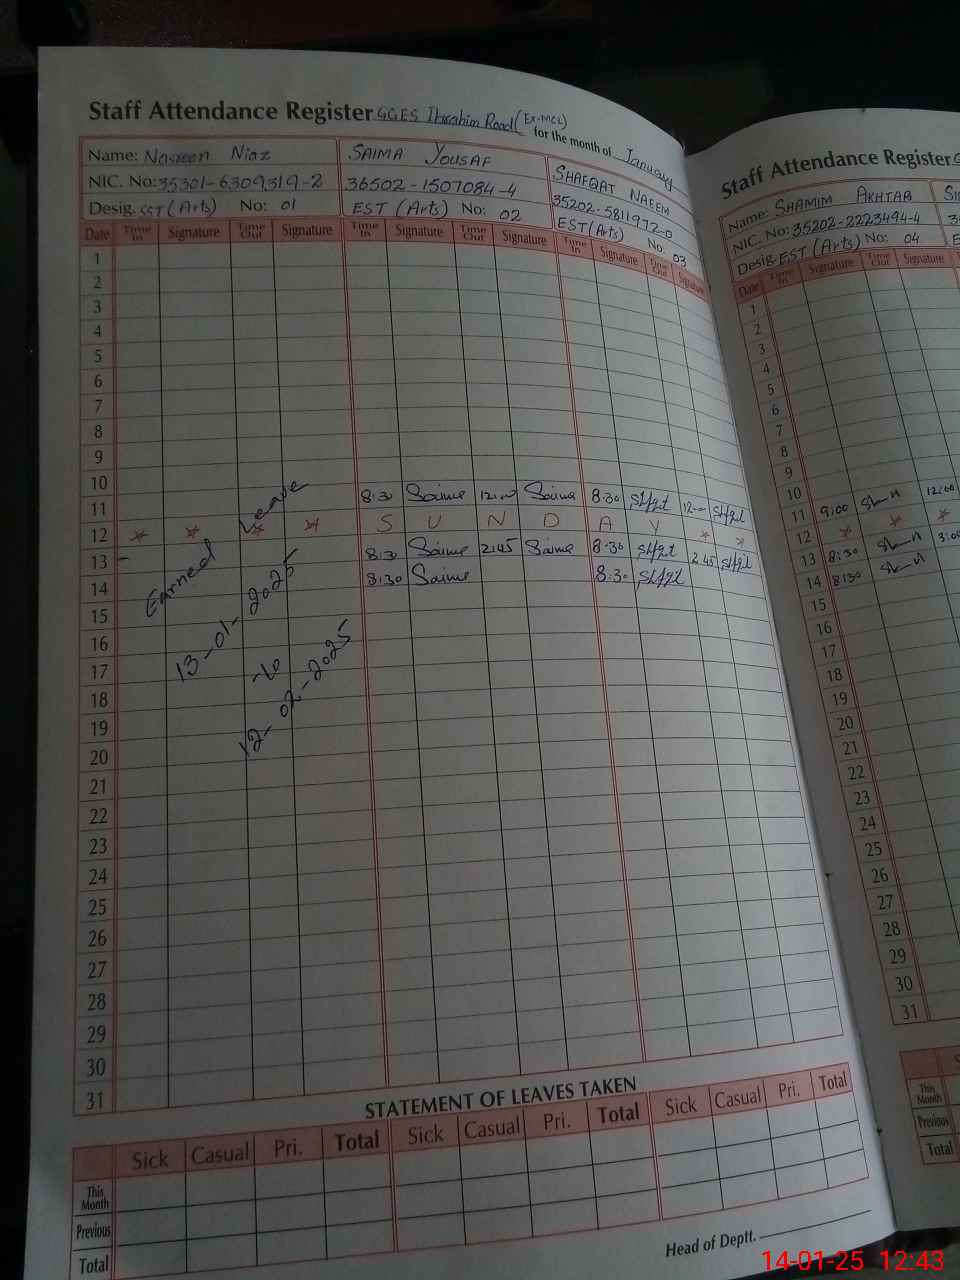 Staff Attendance Register GGES Ibrahim Road (Ex-MCL) for the month of January
Name: Nasreen Niaz SAIMA YOUSAF SHAFQAT NAEEM
NIC. No: 35301-6309319-2 36502-1507084-4 35202-5811972-0
Desig. SST (Arts) No: 01 EST (Arts) No: 02 EST (Arts) No. 03
Date Time In Signature Time Out Signature Time In Signature Time Out Signature Time In Signature Time Out Signature
1
2
3
4
5
6
7
8
9
10
11 8:30 Saima 12:00 Saima 8:30 12:00
12 * * * * S U N D A Y * *
13 - 8:30 Saima 2:45 Saima 8:30 2:45
14 8:30 Saima 8:30
15
16
17
18
19
20
21
22
23
24
25
26
27
28
29
30
31
Earned Leave
13-01-2025
to
12-02-2025
STATEMENT OF LEAVES TAKEN
Sick Casual Pri. Total Sick Casual Pri. Total Sick Casual Pri. Total
This Month
Previous
Total
Head of Deptt.
Staff Attendance Register
Name: SHAMIM AKHTAR
NIC. No: 35202-2223494-4
Desig. EST (Arts) No: 04
Date Time In Signature Time Out Signature
1
2
3
4
5
6
7
8
9
10
11 9:00 12:00
12 * * *
13 8:30 3:00
14 8:30
15
16
17
18
19
20
21
22
23
24
25
26
27
28
29
30
31
This Month
Previous
Total
14-01-25 12:43